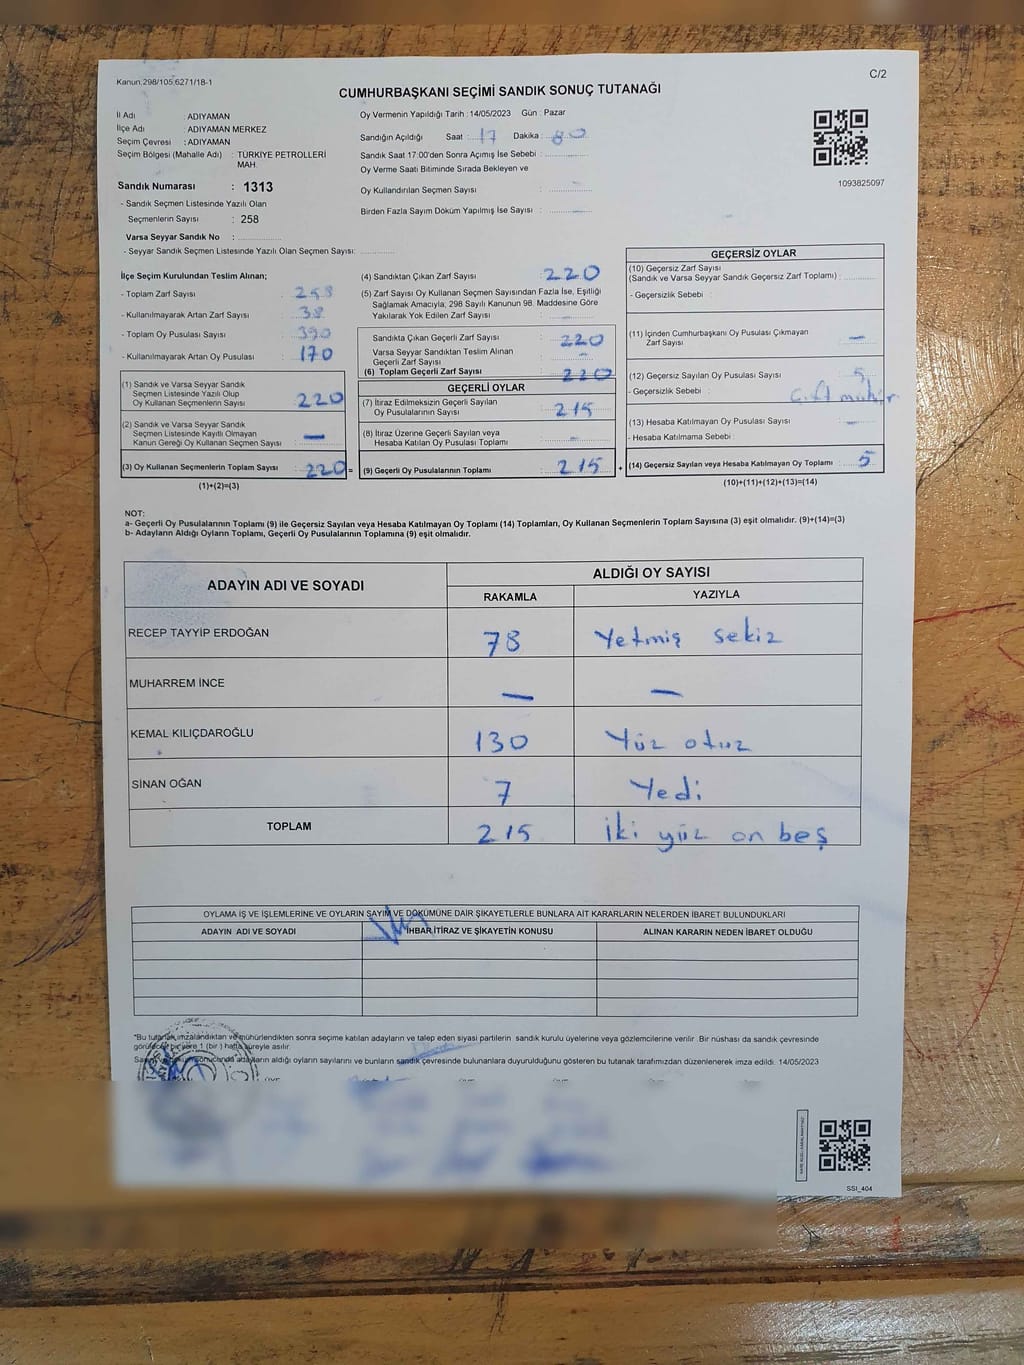 Kanun:298/105,6271/18-1
C/2
CUMHURBAŞKANI SEÇİMİ SANDIK SONUÇ TUTANAĞI
İl Adı : ADIYAMAN
İlçe Adı : ADIYAMAN MERKEZ
Seçim Çevresi : ADIYAMAN
Seçim Bölgesi (Mahalle Adı) : TÜRKİYE PETROLLERİ
MAH.
Sandık Numarası : 1313
- Sandık Seçmen Listesinde Yazılı Olan
Seçmenlerin Sayısı : 258
Varsa Seyyar Sandık No :
- Seyyar Sandık Seçmen Listesinde Yazılı Olan Seçmen Sayısı:
Oy Vermenin Yapıldığı Tarih : 14/05/2023 Gün : Pazar
Sandığın Açıldığı Saat : 17 Dakika :
Sandık Saat 17:00'den Sonra Açımış İse Sebebi :
Oy Verme Saati Bitiminde Sırada Bekleyen ve
Oy Kullandırılan Seçmen Sayısı : -
Birden Fazla Sayım Döküm Yapılmış İse Sayısı : -
1093825097
İlçe Seçim Kurulundan Teslim Alınan;
- Toplam Zarf Sayısı : 258
- Kullanılmayarak Artan Zarf Sayısı : 38
- Toplam Oy Pusulası Sayısı : 390
- Kullanılmayarak Artan Oy Pusulası : 170
(1) Sandık ve Varsa Seyyar Sandık
Seçmen Listesinde Yazılı Olup
Oy Kullanan Seçmenlerin Sayısı : 220
(2) Sandık ve Varsa Seyyar Sandık
Seçmen Listesinde Kayıtlı Olmayan
Kanun Gereği Oy Kullanan Seçmen Sayısı : -
(3) Oy Kullanan Seçmenlerin Toplam Sayısı : 220 =
(1)+(2)=(3)
(4) Sandıktan Çıkan Zarf Sayısı : 220
(5) Zarf Sayısı Oy Kullanan Seçmen Sayısından Fazla İse, Eşitliği
Sağlamak Amacıyla; 298 Sayılı Kanunun 98. Maddesine Göre
Yakılarak Yok Edilen Zarf Sayısı : -
Sandıkta Çıkan Geçerli Zarf Sayısı : 220
Varsa Seyyar Sandıktan Teslim Alınan
Geçerli Zarf Sayısı : -
(6) Toplam Geçerli Zarf Sayısı : 220
GEÇERLİ OYLAR
(7) İtiraz Edilmeksizin Geçerli Sayılan
Oy Pusulalarının Sayısı : 215
(8) İtiraz Üzerine Geçerli Sayılan veya
Hesaba Katılan Oy Pusulası Toplamı : -
(9) Geçerli Oy Pusulalarının Toplamı : 215 +
GEÇERSİZ OYLAR
(10) Geçersiz Zarf Sayısı
(Sandık ve Varsa Seyyar Sandık Geçersiz Zarf Toplamı) :
- Geçersizlik Sebebi :
(11) İçinden Cumhurbaşkanı Oy Pusulası Çıkmayan
Zarf Sayısı : -
(12) Geçersiz Sayılan Oy Pusulası Sayısı : 5
- Geçersizlik Sebebi : Çift mühür
(13) Hesaba Katılmayan Oy Pusulası Sayısı : -
- Hesaba Katılmama Sebebi :
(14) Geçersiz Sayılan veya Hesaba Katılmayan Oy Toplamı : 5
(10)+(11)+(12)+(13)=(14)
NOT:
a- Geçerli Oy Pusulalarının Toplamı (9) ile Geçersiz Sayılan veya Hesaba Katılmayan Oy Toplamı (14) Toplamları, Oy Kullanan Seçmenlerin Toplam Sayısına (3) eşit olmalıdır. (9)+(14)=(3)
b- Adayların Aldığı Oyların Toplamı, Geçerli Oy Pusulalarının Toplamına (9) eşit olmalıdır.
ADAYIN ADI VE SOYADI
ALDIĞI OY SAYISI
RAKAMLA YAZIYLA
RECEP TAYYİP ERDOĞAN 78 Yetmiş sekiz
MUHARREM İNCE - -
KEMAL KILIÇDAROĞLU 130 Yüz otuz
SİNAN OĞAN 7 Yedi
TOPLAM 215 İki yüz on beş
OYLAMA İŞ VE İŞLEMLERİNE VE OYLARIN SAYIM VE DÖKÜMÜNE DAİR ŞİKAYETLERLE BUNLARA AİT KARARLARIN NELERDEN İBARET BULUNDUKLARI
ADAYIN ADI VE SOYADI İHBAR,İTİRAZ VE ŞİKAYETİN KONUSU ALINAN KARARIN NEDEN İBARET OLDUĞU
*Bu tutanak imzalandıktan ve mühürlendikten sonra seçime katılan adayların ve talep eden siyasi partilerin sandık kurulu üyelerine veya gözlemcilerine verilir. Bir nüshası da sandık çevresinde
görülecek bir yere 1 (bir ) hafta süreyle asılır.
adayların aldığı oyların sayılarını ve bunların sandık çevresinde bulunanlara duyurulduğunu gösteren bu tutanak tarafımızdan düzenlenerek imza edildi. 14/05/2023
SSI_404